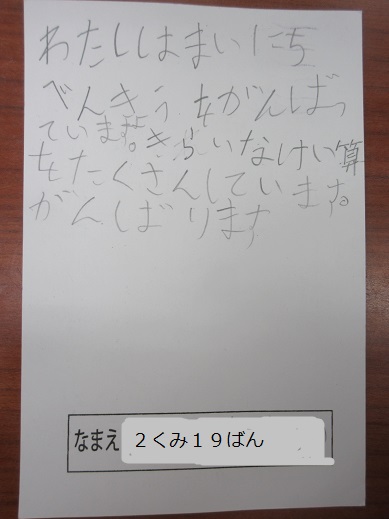 わたしはまいにち
べんきょうをがんばっ
ています。きらいなけい算
をたくさんしています。
がんばります
なまえ ２くみ１９ばん